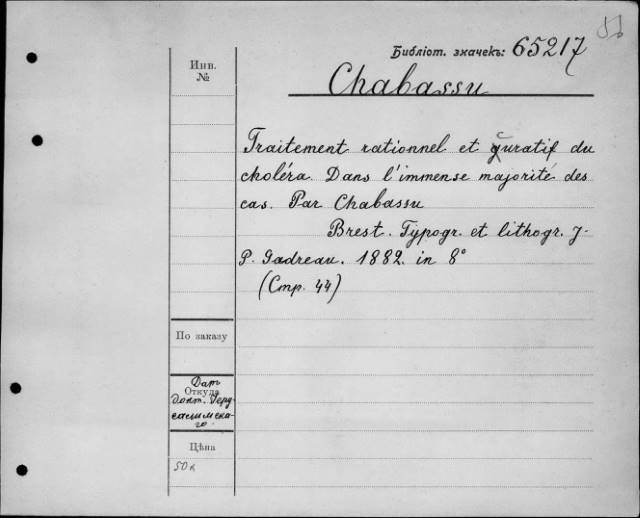 Библіот. значекъ: 65217
Инв.
№
Chabassu
Traitement rationnel et curatif du
choléra. Dans l'immense majorité des
cas. Par Chabassu
Brest. Typogr. et lithogr. J-
P. Gadreau. 1882. in 8°
(Стр. 44)
По заказу
Откуда
Дат
докт. Іеру
салимска-
го.
Цѣна
50 к